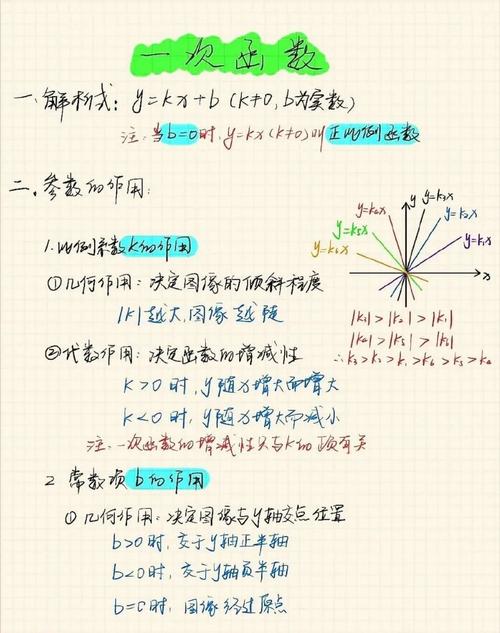 一次函数
一、解析式: y=kx+b (k≠0, b为实数)
注: 当b=0时, y=kx(k≠0)叫正比例函数
二、参数的作用:
1.比例系数k的作用
①几何作用: 决定图像的倾斜程度
|k|越大,图像越陡
②代数作用: 决定函数的增减性
k>0时, y随x增大而增大
k<0时, y随x增大而减小
注: 一次函数的增减性只与k的 有关
y=k₄x
y
y=k₃x
y=k₅x
y=k₂x
y=k₆x
y=k₁x
x
|k₃|>|k₂|>|k₁|
|k₄|>|k₅|>|k₆|
∴k₃>k₂>k₁>k₆>k₅>k₄
2 常数项b的作用
①几何作用: 决定图像与y轴交点位置
b>0时, 交于y轴正半轴
b<0时, 交于y轴负半轴
b=0时, 图像经过原点